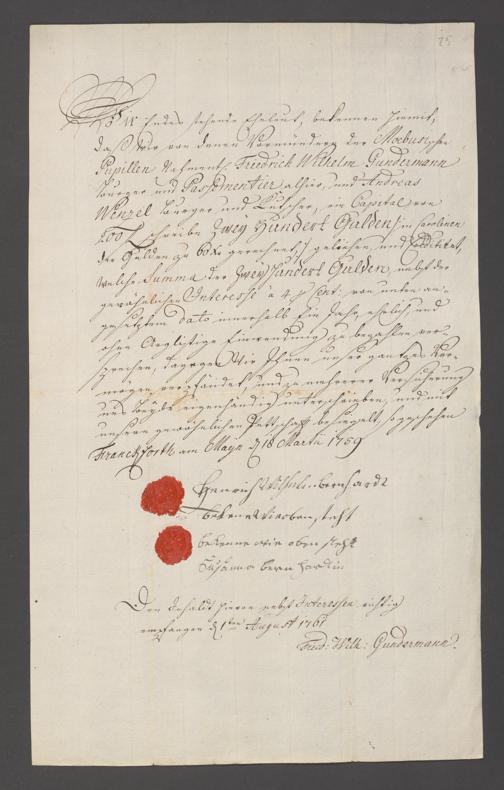 25
Wir Endes stehende Eheleut, bekennen hiemit,
daß Wir von denen Vormündern der Moebusischen
Pupillen Nahmens Friedrich Wilhelm Gundermann
Burger und Possementier alhier, und Andreas
Wenzel Burger und Kutscher, ein Capital von
200 f schreibe Zwey Hundert Gulden, in Carolinen
der Gulden zu 60 Kr gerechnet, geliehen und
welche Summa der Zwey Hundert Gulden, nebst der
gewöhnlichen Interesse à 4 p Cent: von unten an-
gesetztem dato innerhalb Ein Jahr, ehrlich und
ohne Arglistige Einwendung zu bezahlen ver-
sprechen, dagegen Wir Ihnen unser gantzes Ver-
mögen verpfändet und zu mehrerer Versicherung
uns beyde eigenhändig unterschrieben, und mit
unserm gewöhnlichen Pettschafft besiegelt, so geschehen
Franckforth am Mayn d 18 Martii 1759
Henrich Wilhelm bernhardt
bekenne wie oben steht
bekenne wie oben steht
Susanna bern hardin
Den Inhalt hievon nebst Interessen richtig
empfangen d 1ten August 1761
Fried: Wilh: Gundermann.